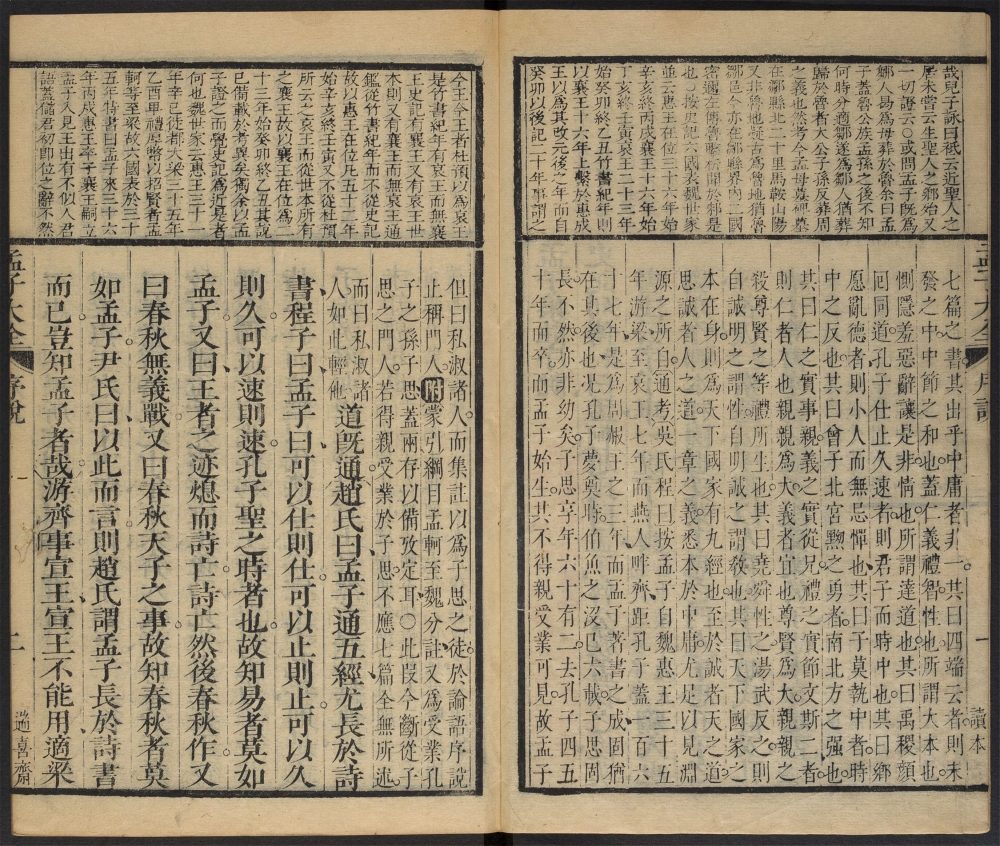 哉兒子詠曰祇云近聖人之
居未嘗云生聖人之鄉始又
一切證云○或問孟子既爲
鄒人曷爲母葬於魯余曰孟
子蓋魯公族孟孫之後不知
何時分適鄒遂爲鄒人猶葬
歸於魯者大公子孫反葬周
之義也然考今孟母墓碑墓
在鄒縣北二十里馬鞍山陽
又非魯地疑古爲魯地猶魯
鄒邑今亦在鄒縣界內二國
密邇左傳魯擊柝聞於邾是
也○按史記六國表魏世家
並云惠王在位三十六年始
辛亥終丙戌襄王十六年始
丁亥終壬寅哀王二十三年
始癸卯終乙丑竹書紀年則
以襄王十六年上繫於惠成
王以爲其改元後之年而自
癸卯以後記二十年事謂之
七篇之書其出乎中庸者非一其曰四端云者則未
發之中中節之和也蓋仁義禮智性也所謂大本也
惻隱羞惡辭讓是非情也所謂達道也其曰禹稷顏
回同道孔子仕止久速者則君子而時中也其曰鄉
愿亂德者則小人而無忌憚也其曰子莫執中者時
中之反也其曰曾子北宮黝之勇者南北方之強也
其曰仁之實事親義之實從兄禮之實節文斯二者
則仁者人也親親爲大義者宜也尊賢爲大親親之
殺尊賢之等禮所生也其曰堯舜性之湯武反之則
自誠明之謂性自明誠之謂教也其曰天下國家之
本在身則天下國家有九經也至於誠者天之道
思誠者人之道一章之義悉本於中庸尤足以見淵
源之所自通考吳氏程曰按孟子自魏惠王三十五
年游梁至哀王七年而燕人畔齊距孔子蓋一百六
十七年是爲周赧王之三年而孟子著書之成固猶
在其後也况孔子夢奠時伯魚之沒已六載子思固
長不然亦非幼矣子思享年六十有二去孔子四五
十年而卒而孟子始生其不得親受業可見故孟子
孟子大全
序說
一
讀本
今王今王者杜預以爲哀王
是竹書紀年有哀王而無襄
王史記有襄王又有哀王世
本則又有襄王而無哀王通
鑑從竹書紀年而不從史記
故以惠王在位凡五十二年
始辛亥終壬寅又不從杜預
所云之哀王而從世本所有
之襄王故以襄王在位爲二
十三年始癸卯終乙丑其說
已備載於考異矣余以孟
子證之而覺史記爲近是者
何也魏世家云惠王三十一
年辛巳徙都大梁三十五年
乙酉卑禮厚幣以招賢者孟
軻等至梁故六國表於三十
五年特書曰孟子來三十六
年丙戌惠王卒子襄王嗣立
孟子入見王出有不似人君
語蓋儲君初即位之辭不然
但曰私淑諸人而集註以爲子思之徒於論語序說
止稱門人附蒙引綱目孟軻至魏分註又爲受業孔
子之孫子思蓋兩存以備攷定耳○此叚今斷從子
思之門人若得親受業於子思不應七篇全無所述
而曰私淑諸
人如此輕他道旣通趙氏曰孟子通五經尤長於詩
書程子曰孟子曰可以仕則仕可以止則止可以久
則久可以速則速孔子聖之時者也故知易者莫如
孟子又曰王者之迹熄而詩亡詩亡然後春秋作又
曰春秋無義戰又曰春秋天子之事故知春秋者莫
如孟子尹氏曰以此而言則趙氏謂孟子長於詩書
而已豈知孟子者哉游齊事宣王宣王不能用適梁
孟子大全
序說
二
遄喜齋